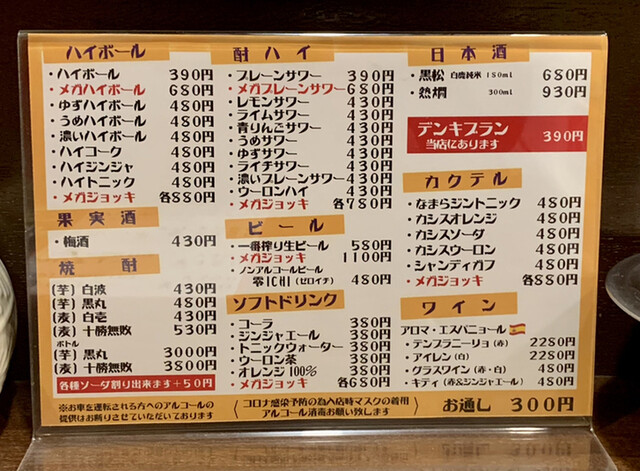 ハイボール
・ハイボール 390円
・メガハイボール 680円
・ゆずハイボール 480円
・うめハイボール 480円
・濃いハイボール 480円
・ハイコーク 480円
・ハイジンジャ 480円
・ハイトニック 480円
・メガジョッキ 各880円
果実酒
・梅酒 430円
焼酎
(芋) 白波 430円
(芋) 黒丸 480円
(麦) 白壱 430円
(麦) 十勝無敗 530円
ボトル
(芋) 黒丸 3000円
(麦) 十勝無敗 3800円
各種ソーダ割り出来ます+50円
酎ハイ
・プレーンサワー 390円
・メガプレーンサワー 680円
・レモンサワー 430円
・ライムサワー 430円
・青りんごサワー 430円
・うめサワー 430円
・ゆずサワー 430円
・ライチサワー 430円
・濃いプレーンサワー 430円
・ウーロンハイ 430円
・メガジョッキ 各780円
ビール
・一番搾り生ビール 580円
・メガジョッキ 1100円
・ノンアルコールビール
零ICHI (ゼロイチ) 480円
ソフトドリンク
・コーラ 380円
・ジンジャエール 380円
・トニックウォーター 380円
・ウーロン茶 380円
・オレンジ100% 380円
・メガジョッキ 各680円
日本酒
・黒松 白鹿純米 180ml 680円
・熱燗 300ml 930円
デンキブラン 390円
当店にあります
カクテル
・なまらジントニック 480円
・カシスオレンジ 480円
・カシスソーダ 480円
・カシスウーロン 480円
・シャンディガフ 480円
・メガジョッキ 各880円
ワイン
アロマ・エスパニョール
・テンプラニーリョ (赤) 2280円
・アイレン (白) 2280円
・グラスワイン (赤・白) 480円
・キティ (赤&ジンジャエール) 480円
※お車を運転される方へのアルコールの
提供はお断りさせていただいております
コロナ感染予防の為入店時マスクの着用
アルコール消毒お願い致します
お通し 300円